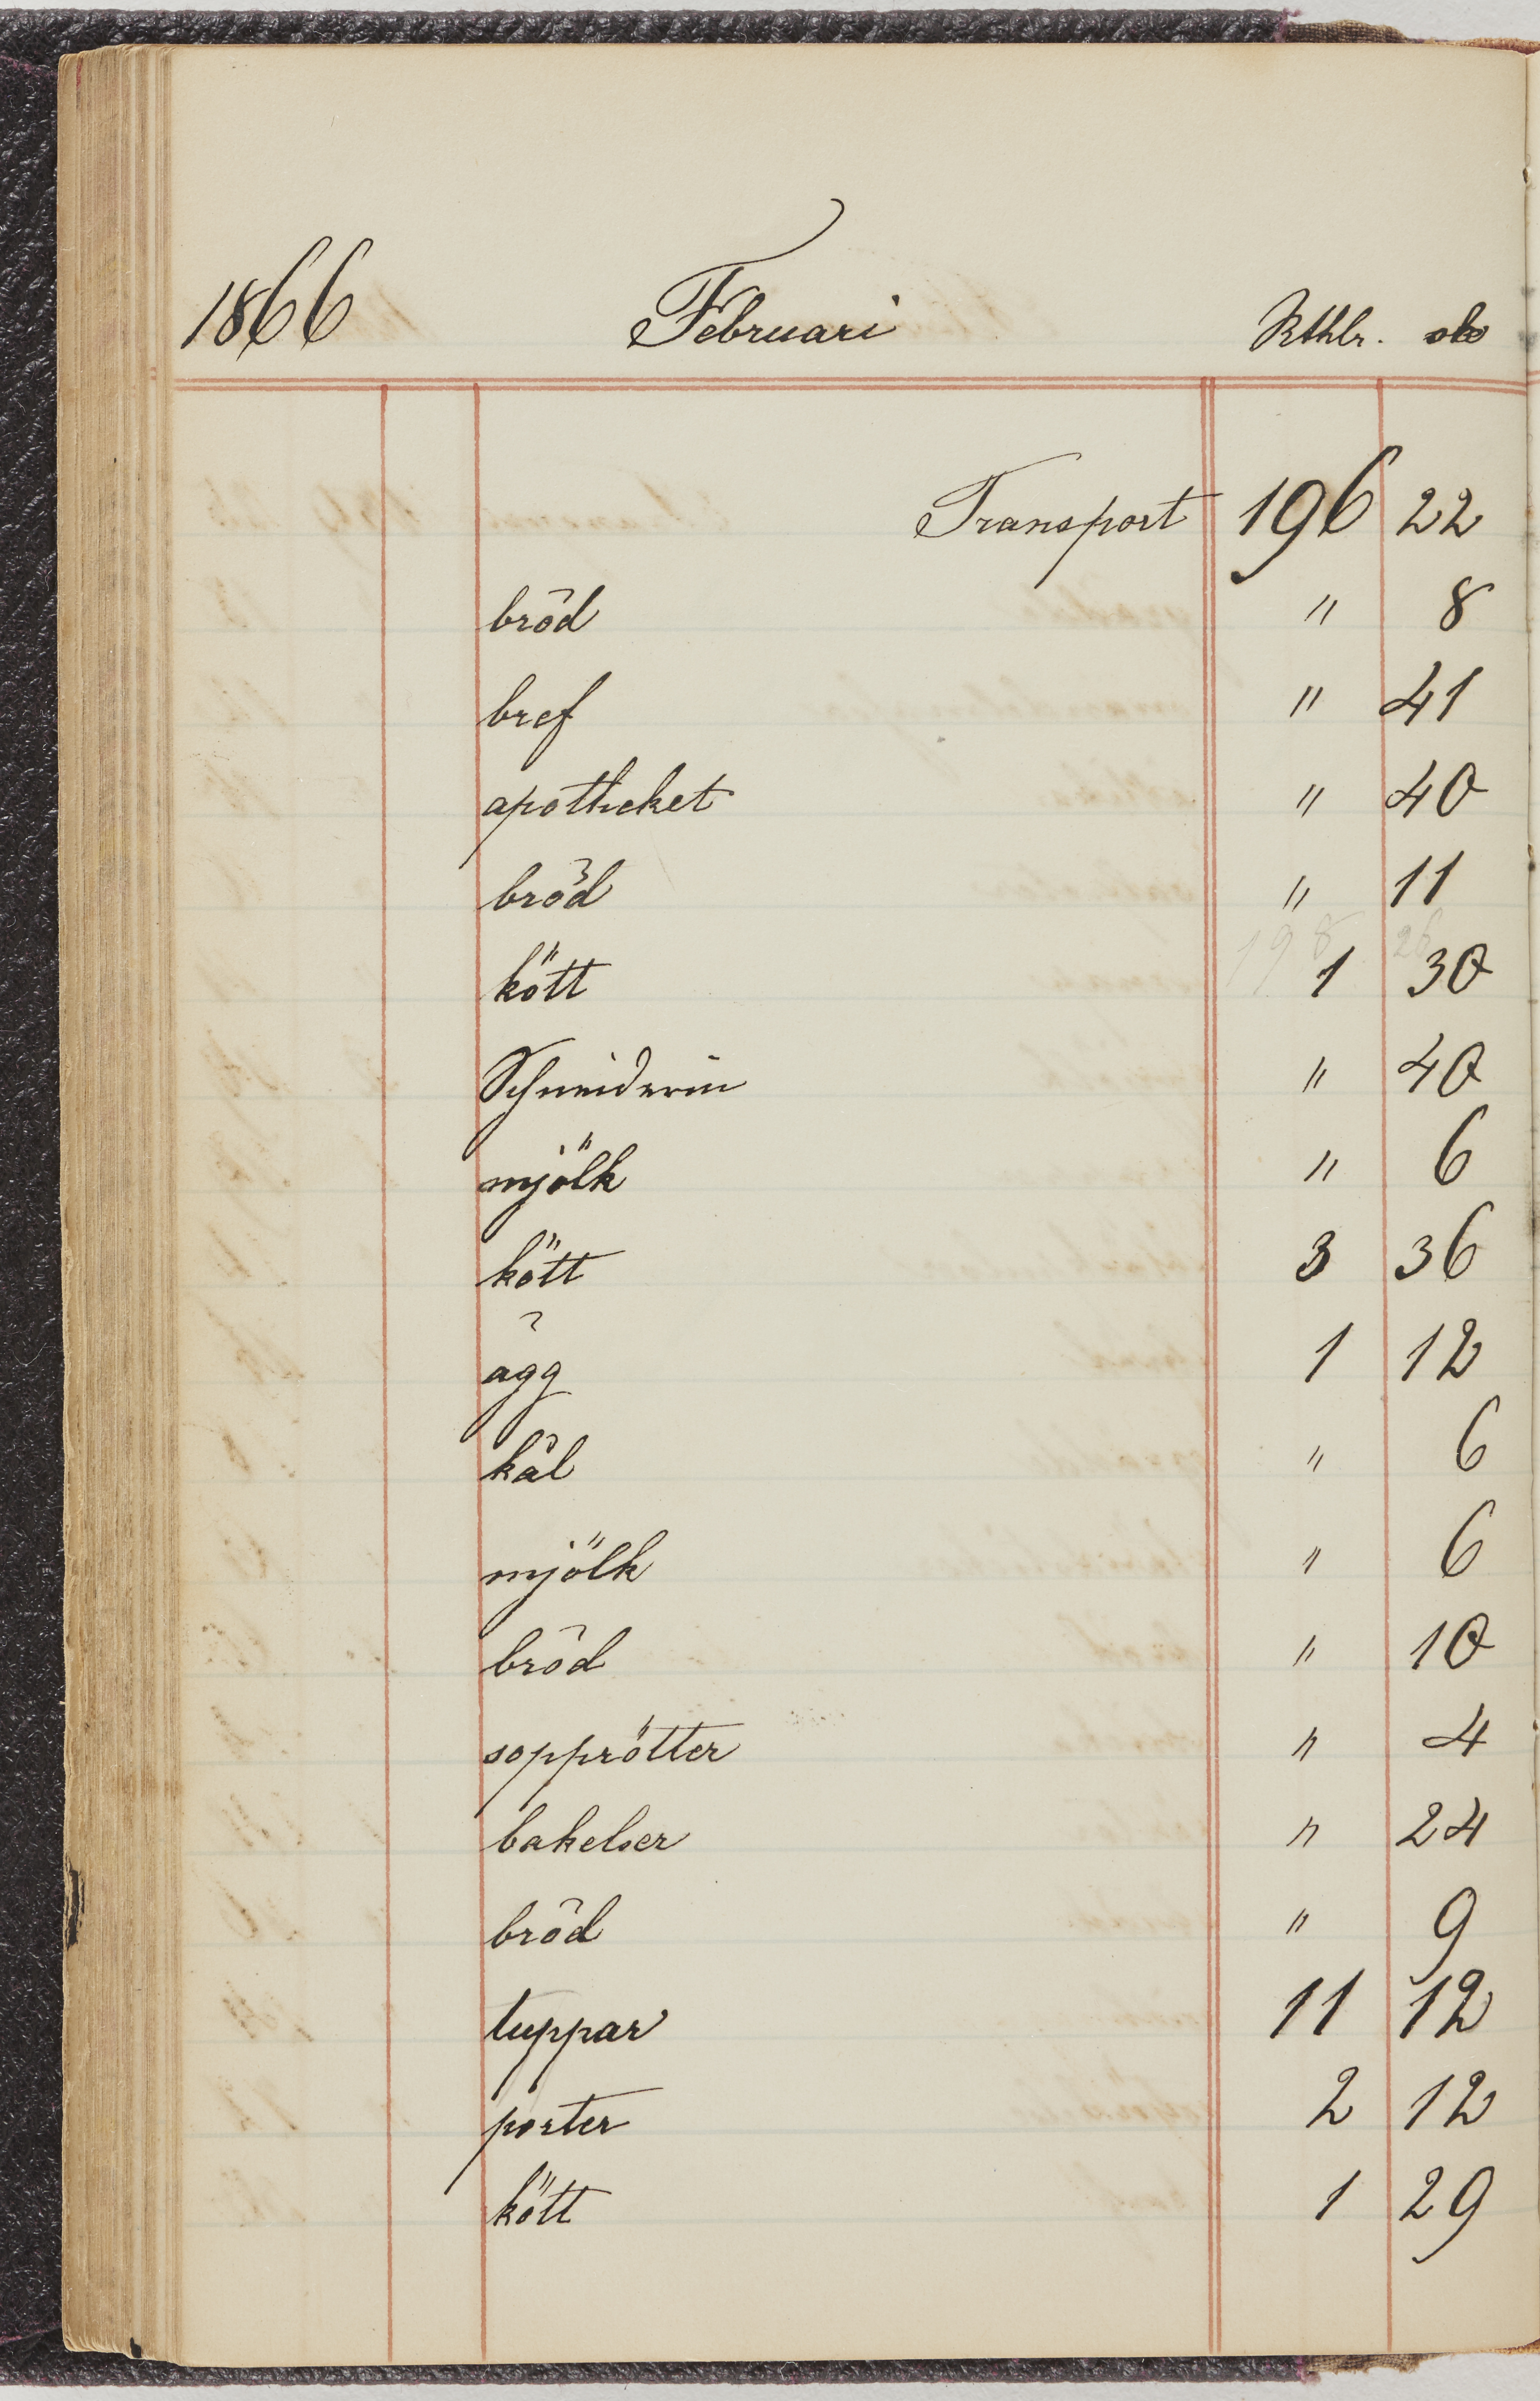 1866 Februari Rthlr. sk
Transport 196 22
bröd " 8
bref " 41
apotheket " 40
bröd " 11
198 26
kött 1 30
Schneiderin " 40
mjölk " 6
kött 3 36
ägg 1 12
kål " 6
mjölk " 6
bröd " 10
sopprötter " 4
bakelser " 24
bröd " 9
tuppar 11 12
porter 2 12
kött 1 29